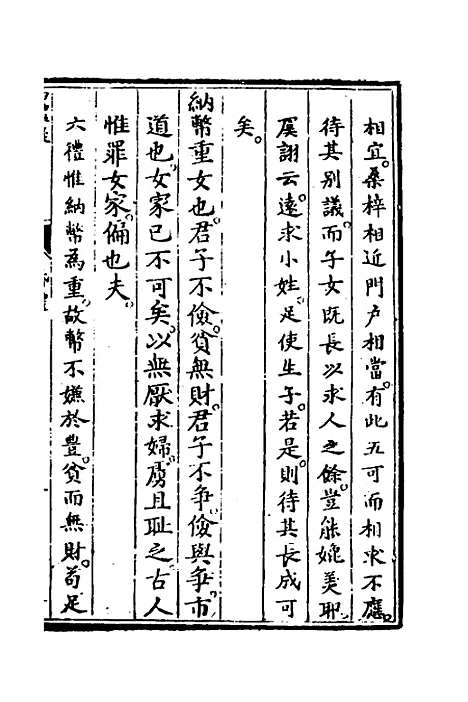 相宜。桑梓相近門户相當。有此五可而相求不應。
待其别議。而子女既長以求人之餘豈能媲美耶
虞詡云。遠求小姓。足使生子。若是。則待其長成可
矣。
納幣重女也。君子不儉。貧無財。君子不爭。儉與爭。市
道也。女家已不可矣。以無厭求婦。虜且耻之。古人
惟罪女家。偏也夫。
六禮惟納幣爲重。故幣不嫌於豐。貧而無財。茍足